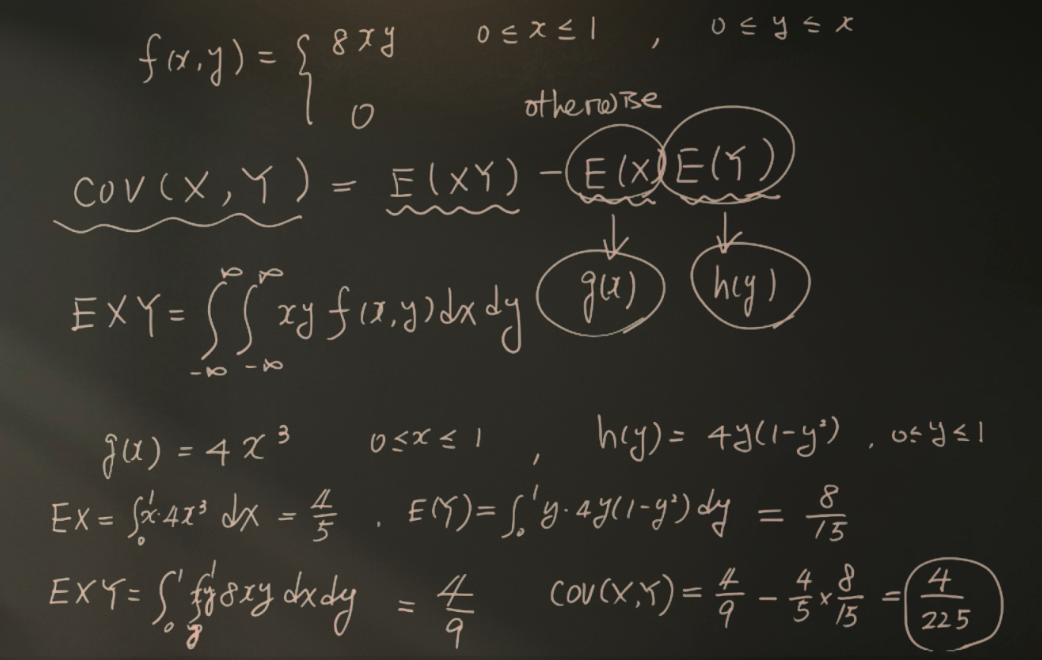 f(x,y) = { 8xy 0 ≤ x ≤ 1 , 0 ≤ y ≤ x
0 otherwise
COV(X,Y) = E(XY) - E(X)E(Y)
↓ ↓
EXY = ∫_{-∞}^{∞} ∫_{-∞}^{∞} xy f(x,y) dx dy g(x) h(y)
g(x) = 4x³ 0 ≤ x ≤ 1 , h(y) = 4y(1-y²) , 0 ≤ y ≤ 1
EX = ∫₀¹ x·4x³ dx = 4/5 . E(Y) = ∫₀¹ y·4y(1-y²) dy = 8/15
EXY = ∫₀¹ ∫_y^1 xy 8xy dx dy = 4/9 COV(X,Y) = 4/9 - 4/5 × 8/15 = 4/225